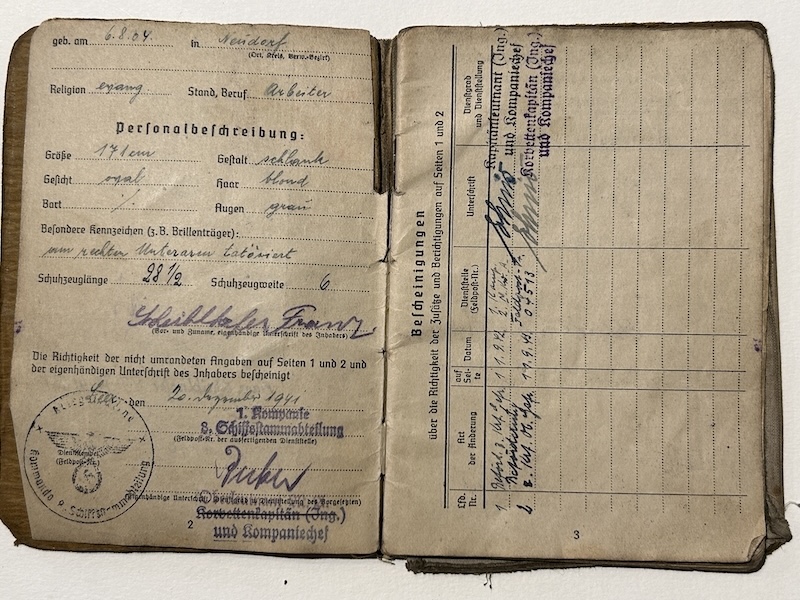 geb. am 6.8.04. in Neudorf
(Ort, Kreis, Verw.-Bezirk)
Religion evang Stand, Beruf Arbeiter
Personalbeschreibung:
Größe 171cm Gestalt schlank
Gesicht oval Haar blond
Bart ./. Augen grau
Besondere Kennzeichen (z.B. Brillenträger):
am rechten Unterarm tätowiert
Schuhzeuglänge 28 1/2 Schuhzeugweite 6
Franz
(Vor- und Zuname, eigenhändige Unterschrift des Inhabers)
Die Richtigkeit der nicht umrandeten Angaben auf Seiten 1 und 2 und
der eigenhändigen Unterschrift des Inhabers bescheinigt
Leer, den 20. Dezember 1941
1. Kompanie
8. Schiffsstammabteilung
(Feldpost-Nr. der ausfertigenden Dienststelle)
Kriegsmarine
Dienstsiegel
(Feldpost-Nr.)
Kommando 8. Schiffsstammabteilung
Korvettenkapitän (Ing.)
und Kompaniechef
2
Bescheinigungen
über die Richtigkeit der Zusätze und Berichtigungen auf Seiten 1 und 2
Lfd. Nr.
Art der Änderung
auf Seite
Datum
Dienststelle (Feldpost-Nr.)
Unterschrift
Dienstgrad und Dienststellung
1 1 1.9.42
Kapitänleutnant (Ing.)
und Kompaniechef
2 1 1.9.42 04513
Korvettenkapitän (Ing.)
und Kompaniechef
3